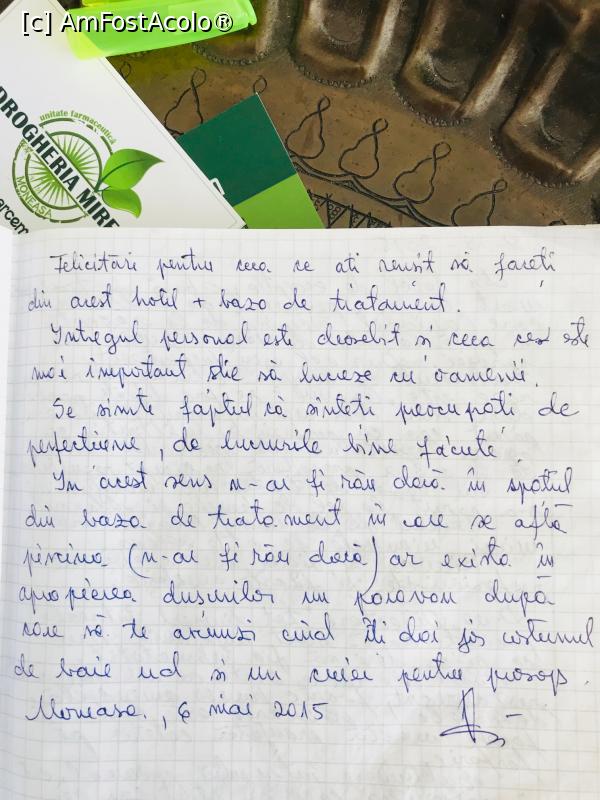 [c] AmFostAcolo®
unitate farmaceutică
DROGHERIA MIRE
MONEASA
Felicitări pentru ceea ce ati reusit să faceti
din acest hotel + baza de tratament.
Intregul personal este deosebit si ceea ce este
mai important stie să lucreze cu oamenii.
Se simte faptul că sinteti preocupati de
perfectiune, de lucrurile bine făcute.
In acest sens n-ar fi rău dacă în spatiul
din baza de tratament in care se află
piscina (n-ar fi rău dacă) ar exista in
apropierea dusurilor un paravan după
care să te ascunzi cind iti dai jos costumul
de baie ud si un cuier pentru prosop.
Moneasa, 6 mai 2015